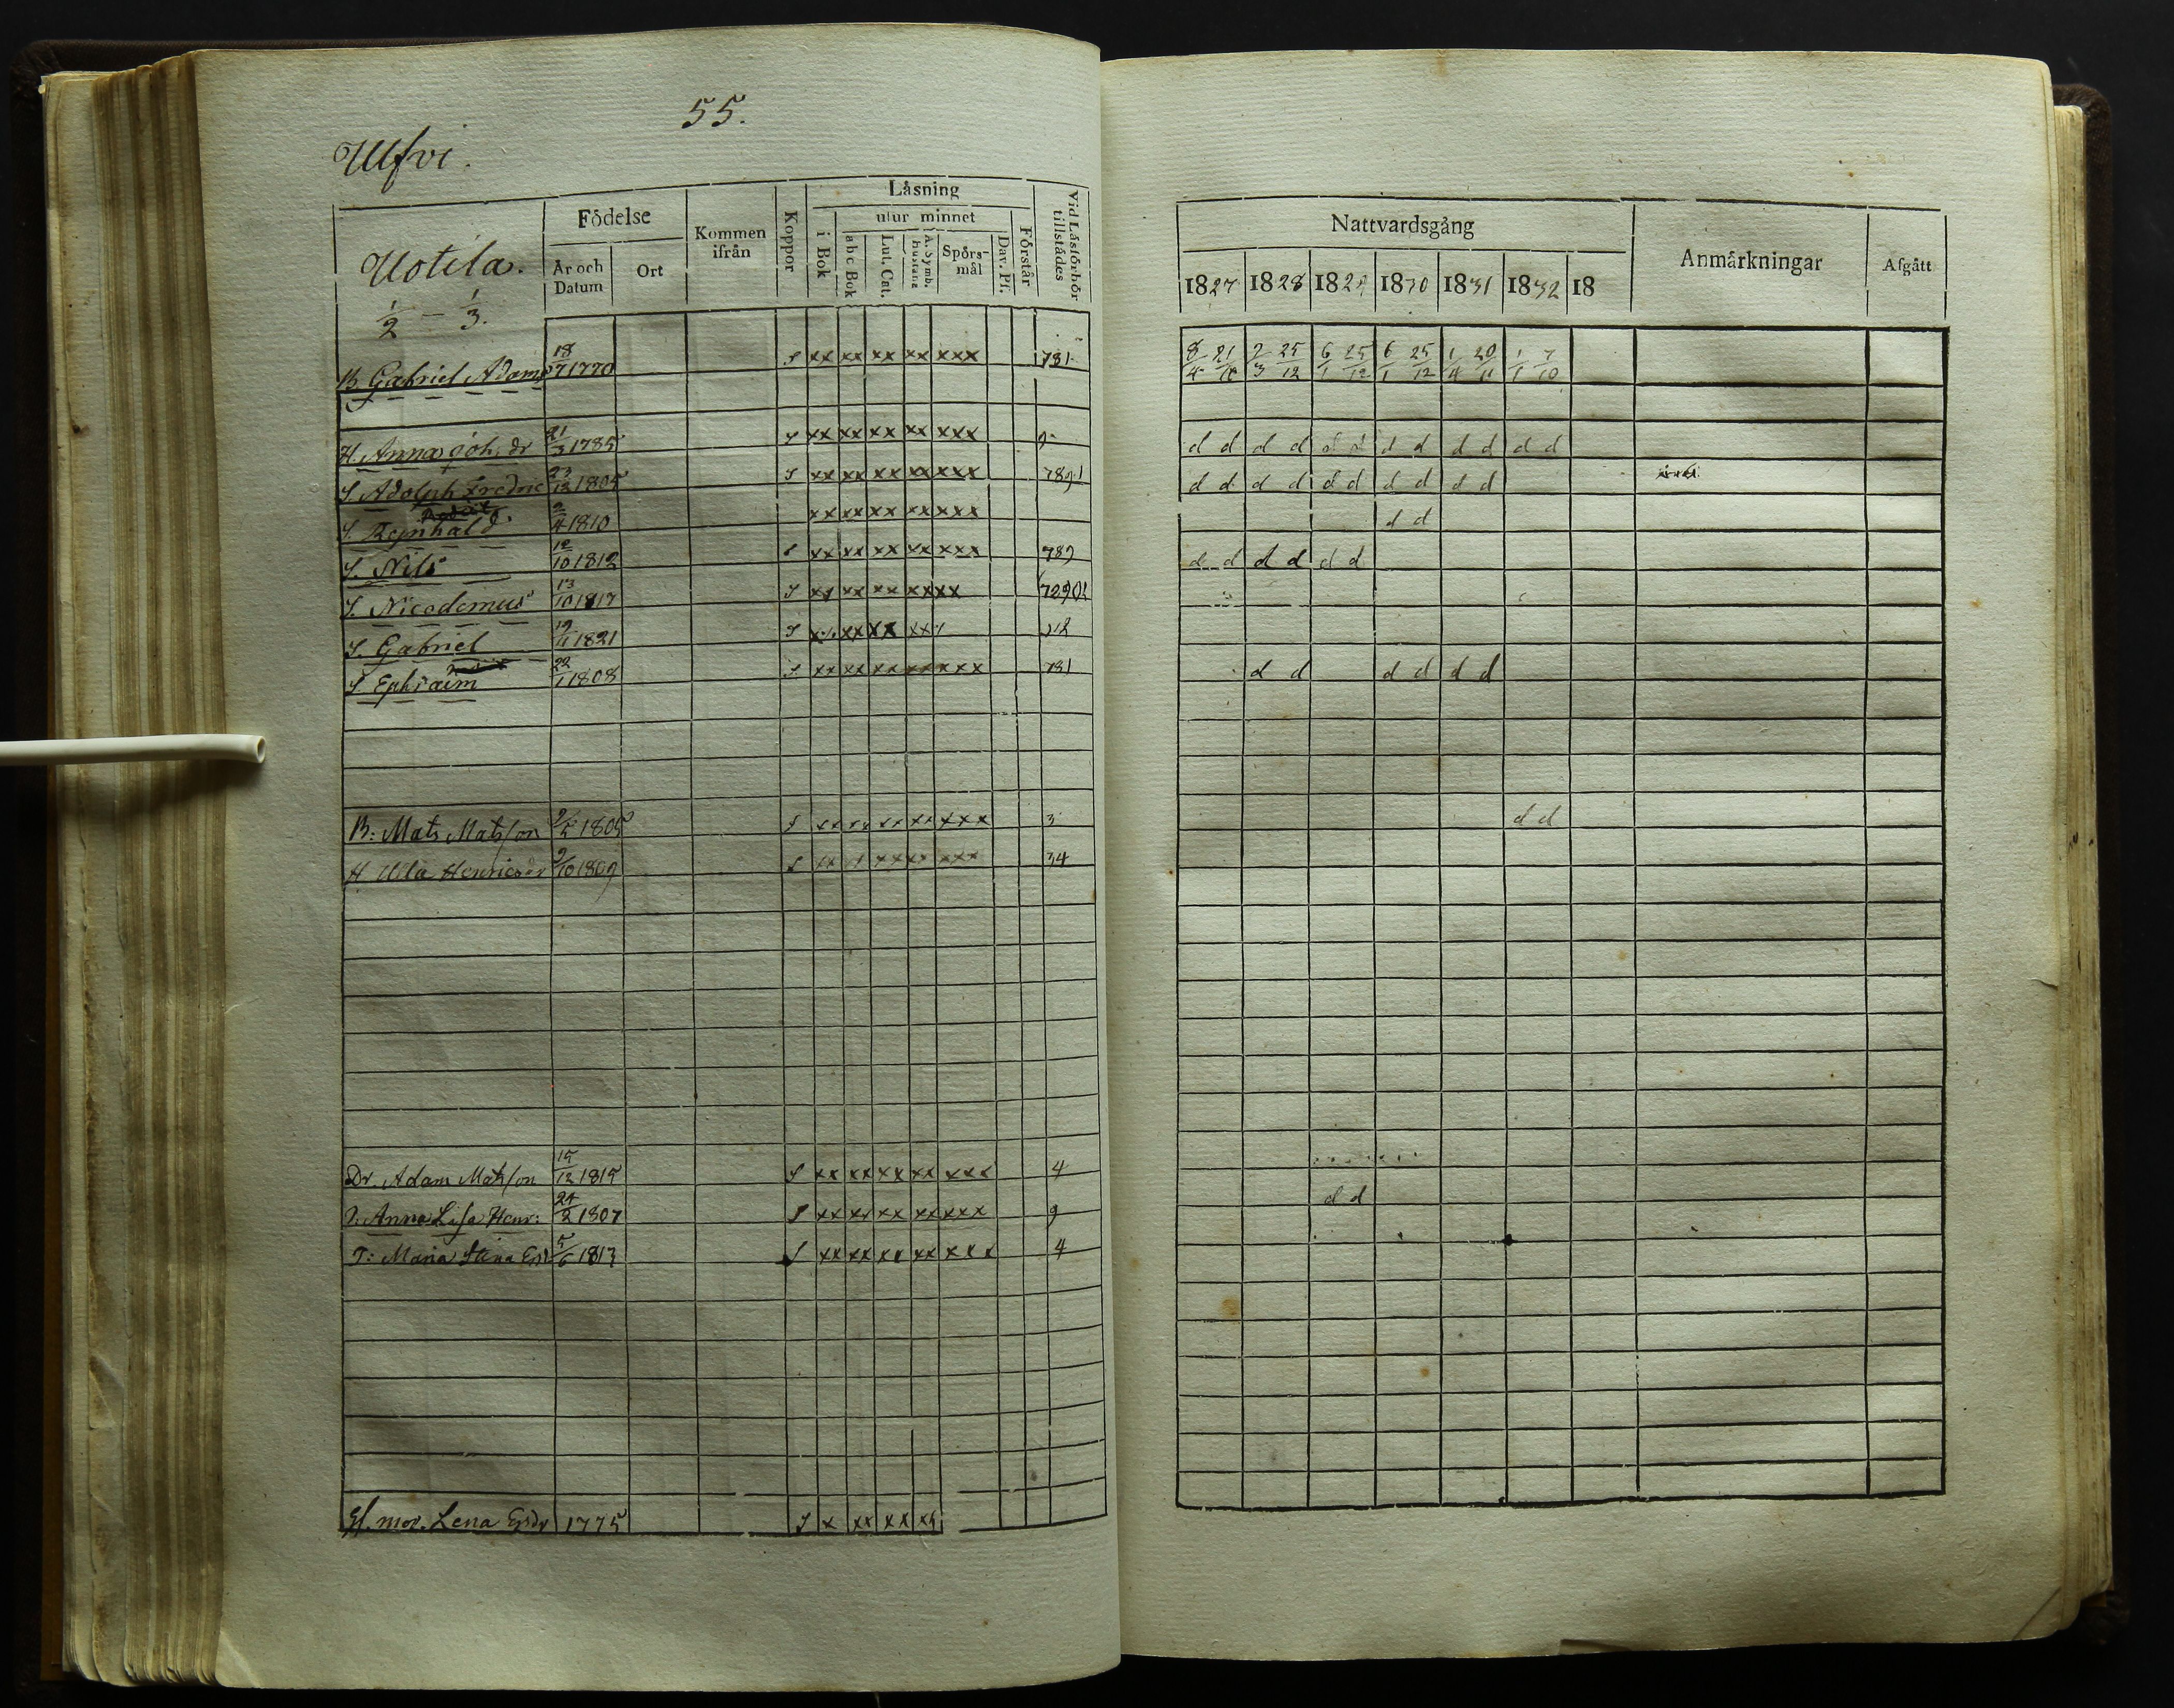 55.
Ulfvi.
Uotila.
1/2 - 1/3.
Födelse
År och Datum
Ort
Kommen ifrån
Koppor
Läsning
i Bok
utur minnet
abc Bok
Lut. Cat.
A. Symb. hustafla
Spörsmål
Dav. Ps.
Förstår
Vid Läsförhör tillstädes
Nattvardsgång
1827 1828 1829 1830 1831 1832 18
Anmärkningar
Afgått
B. Gabriel Adams 18/7 1770 S xx xx xx xx xxx 781 8/4 21/10 2/3 25/12 6/1 25/12 6/1 25/12 1/4 20/11 1/1 7/10
H. Anna Joh. dr 21/3 1785 S xx xx xx xx xxx 9 d d d d d d d d d d d d
S. Adolph Fredric 23/12 1805 S xx xx xx xx xxx 7891 d d d d d d d d d d
S. Reinhold 2/4 1810 xx xx xx xx xxx d d
S. Nils 12/10 1812 S xx xx xx xx xxx 789 d d d d d d
S. Nicodemus 13/10 1817 S xx xx xx xx xx
S. Gabriel 19/11 1821 S xx xx xx
S. Ephraim 22/1 1808 S xx xx xx xx xxx 781 d d d d d d
B: Mats Matsson 2/5 1805 S xx xx xx xx xxx 3 d d
H Ulla Henricsdr 9/10 1809 S xx xx xx xxx 34
Dr. Adam Matsson 15/12 1815 S xx xx xx xx xxx 4
P. Anna Lisa Henr: 24/2 1807 S xx xx xx xx xxx 9 d d
P: Maria Stina 5/6 1813 S xx xx xx xx xxx 4
Sf. mor. Lena 1775 S x xx xx xx